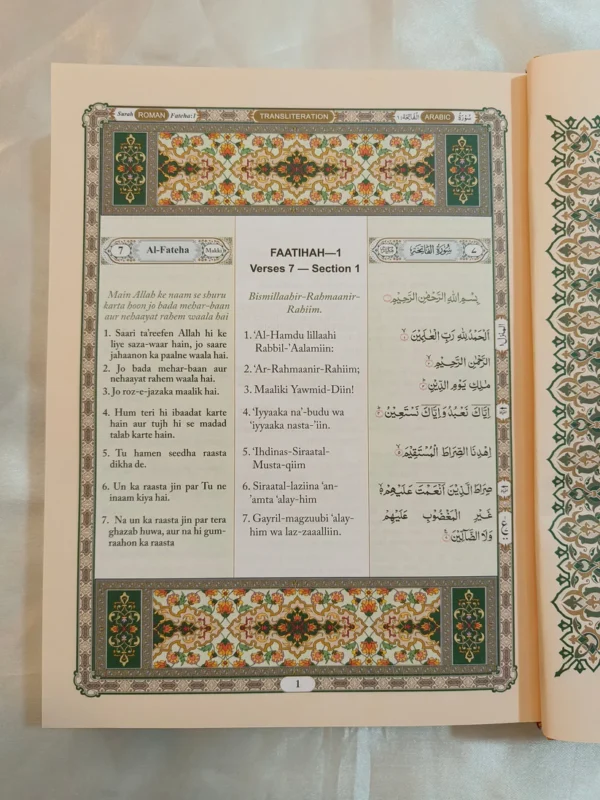 Surah ROMAN Fateha:1
TRANSLITERATION
الفاتحة ١ ARABIC سُورَة
7 Al-Fateha Makki
Main Allah ke naam se shuru
karta hoon jo bada mehar-baan
aur nehaayat rahem waala hai
1. Saari ta'reefen Allah hi ke
liye saza-waar hain, jo saare
jahaanon ka paalne waala hai.
2. Jo bada mehar-baan aur
nehaayat rahem waala hai.
3. Jo roz-e-jazaka maalik hai.
4. Hum teri hi ibaadat karte
hain aur tujh hi se madad
talab karte hain.
5. Tu hamen seedha raasta
dikha de.
6. Un ka raasta jin par Tu ne
inaam kiya hai.
7. Na un ka raasta jin par tera
ghazab huwa, aur na hi gum-
raahon ka raasta
FAATIHAH—1
Verses 7 — Section 1
Bismillaahir-Rahmaanir-
Rahiim.
1. 'Al-Hamdu lillaahi
Rabbil-'Aalamiin:
2. 'Ar-Rahmaanir-Rahiim;
3. Maaliki Yawmid-Diin!
4. 'Iyyaaka na'-budu wa
'iyyaaka nasta-'iin.
5. 'Ihdinas-Siraatal-
Musta-qiim
6. Siraatal-laziina 'an-
'amta 'alay-him
7. Gayril-magzuubi 'alay-
him wa laz-zaaalliin.
سُوْرَةُ الْفَاتِحَةِ ٧
بِسْمِ اللهِ الرَّحْمٰنِ الرَّحِيْمِ
اَلْحَمْدُ لِلّٰهِ رَبِّ الْعٰلَمِيْنَ ١
الرَّحْمٰنِ الرَّحِيْمِ ٢
مٰلِكِ يَوْمِ الدِّيْنِ ٣
اِيَّاكَ نَعْبُدُ وَاِيَّاكَ نَسْتَعِيْنُ ٤
اِهْدِنَا الصِّرَاطَ الْمُسْتَقِيْمَ ٥
صِرَاطَ الَّذِيْنَ اَنْعَمْتَ عَلَيْهِمْ ٦
غَيْرِ الْمَغْضُوْبِ عَلَيْهِمْ
وَلَا الضَّآلِّيْنَ ٧
1